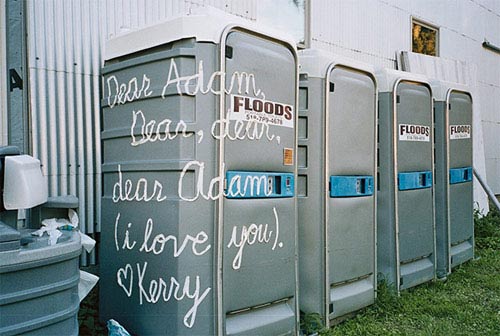 Dear Adam,
Dear, dear,
dear Adam
(i love you).
♡Kerry
FLOODS
519-789-4678
FLOODS
FLOODS